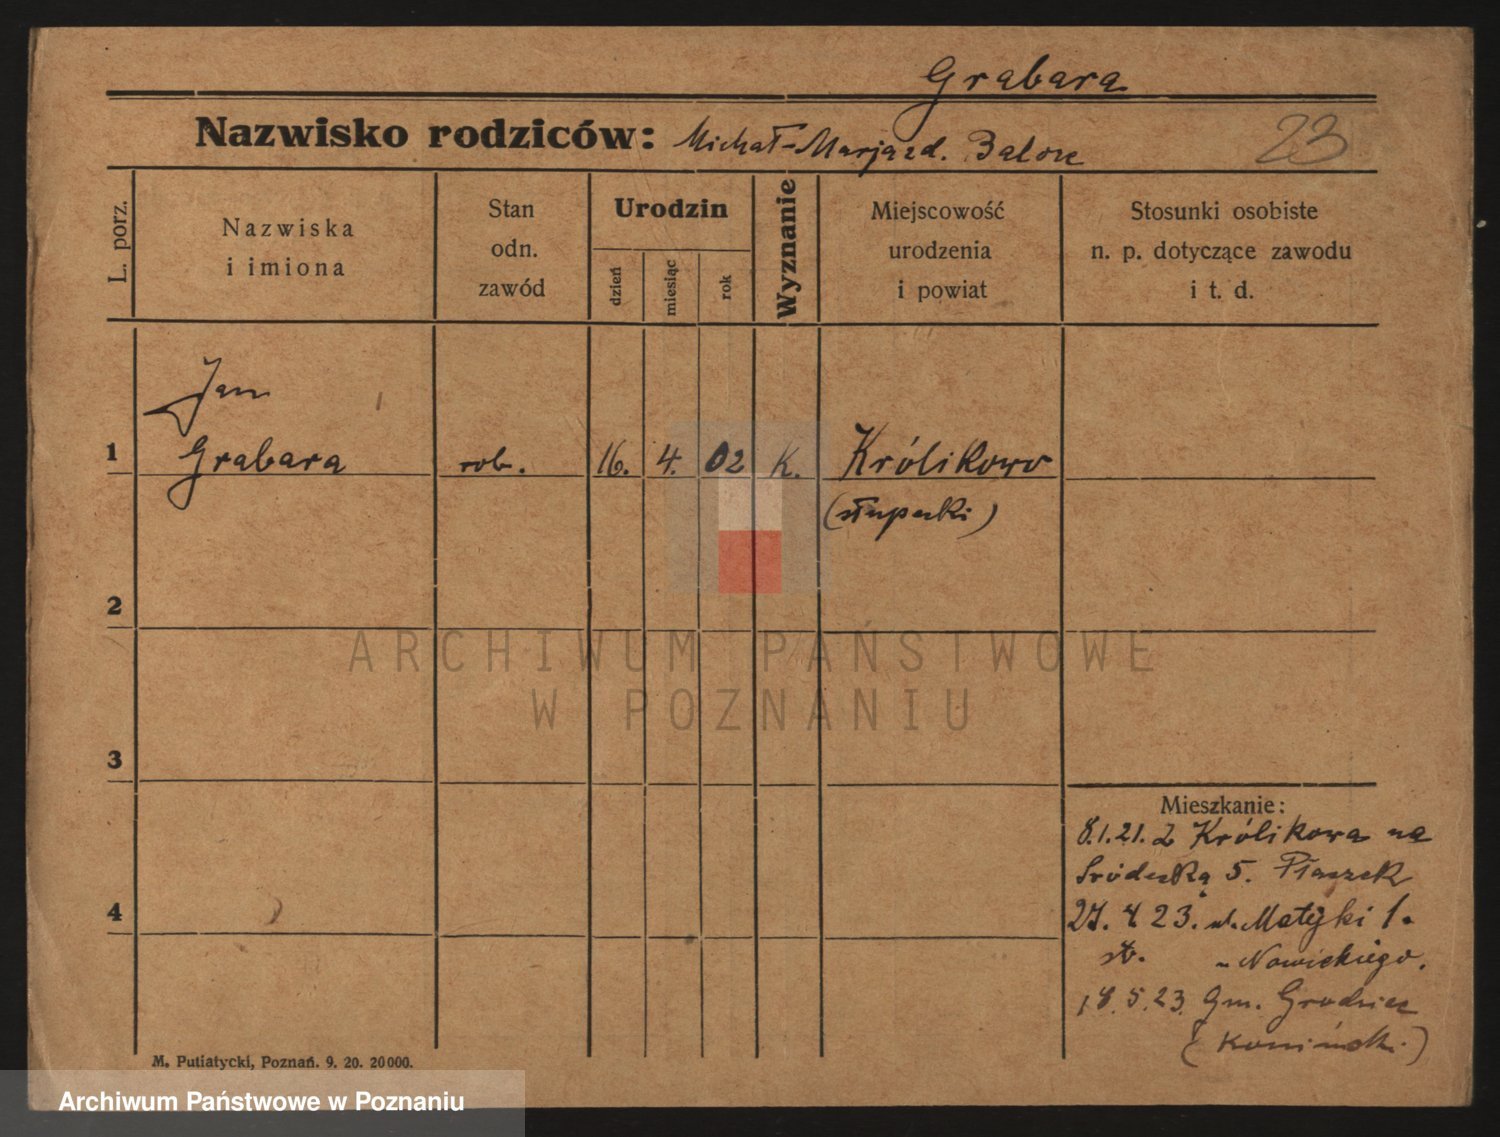 Grabara
Nazwisko rodziców: Michał-Marja zd. 23
L. porz.
Nazwiska
i imiona
Stan
odn.
zawód
Urodzin
dzień
miesiąc
rok
Wyznanie
Miejscowość
urodzenia
i powiat
Stosunki osobiste
n. p. dotyczące zawodu
i t. d.
Jan
1 Grabara rob. 16. 4. 02 K. Królikowo
(słupecki)
2
3
4
Mieszkanie:
8.1.21. Z Królikowa na
Śródecką 5. Ptaszek
27. 4 23. ul. Matejki 1.
Nowickiego.
18.5.23. Gm. Grodziec
(Konińsk.)
M. Putiatycki, Poznań. 9. 20. 20 000.
ARCHIWUM PAŃSTWOWE
W POZNANIU
Archiwum Państwowe w Poznaniu